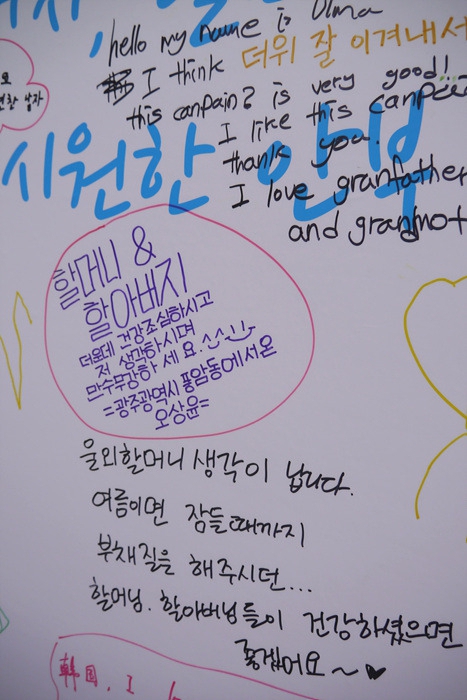 hello my name is Olma
I think
this canpain? is very good!
I like this canpai
thank you.
I love granfather
and granmot
더위 잘 이겨내서
시원한 안부
할머니 &
할아버지
더운데 건강조심하시고
저 생각하시며
만수무강하세요.
=광주광역시 풍암동에서 온
오상윤=
울외할머니 생각이 납니다.
여름이면 잠들때까지
부채질을 해주시던...
할머님. 할아버님들이 건강하셨으면
좋겠어요~♥
韩国, I